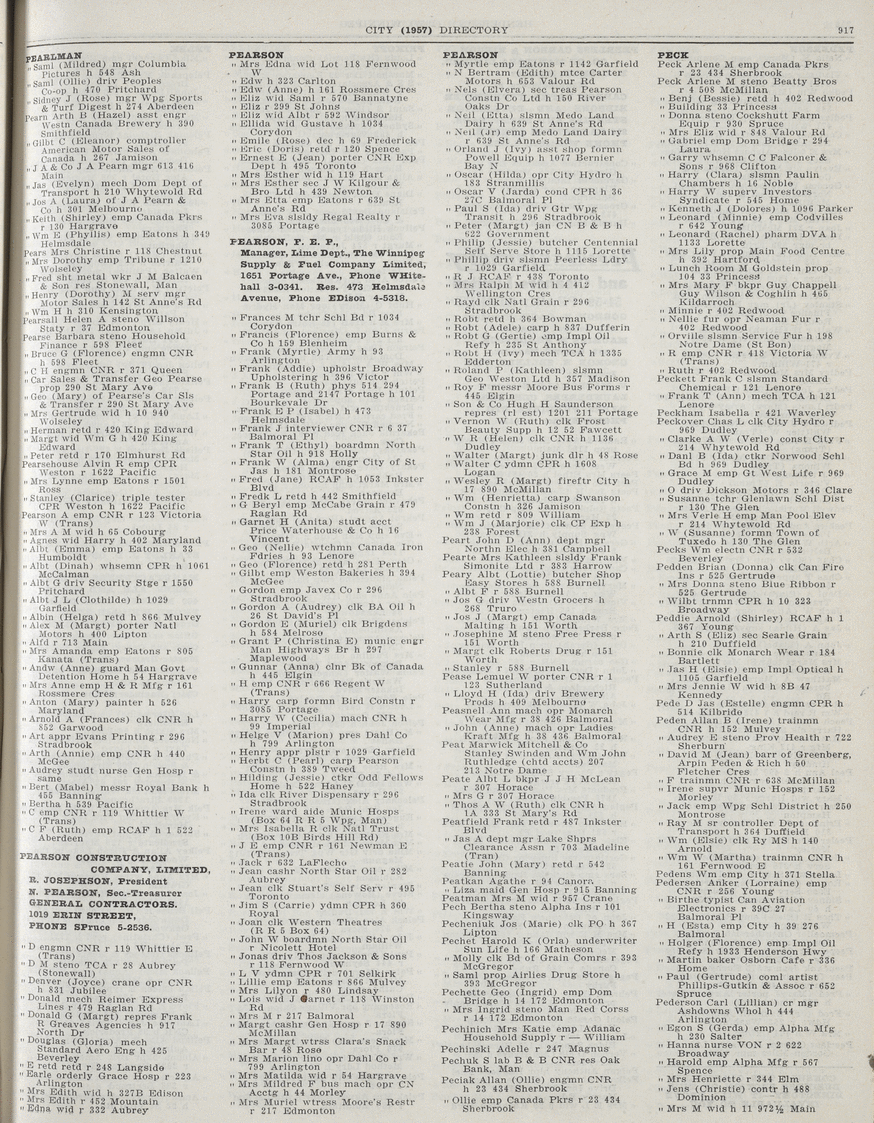 CITY (1957) DIRECTORY
917
PEARLMAN
" Saml (Mildred) mgr Columbia
Pictures h 548 Ash
" Saml (Ollie) driv Peoples
Co-op h 470 Pritchard
" Sidney J (Rose) mgr Wpg Sports
& Turf Digest h 274 Aberdeen
Pearn Arth B (Hazel) asst engr
Westn Canada Brewery h 390
Smithfield
" Gilbt C (Eleanor) comptroller
American Motors Sales of
Canada h 267 Jamison
" J A & Co J A Pearn mgr 613 416
Main
" Jas (Evelyn) mech Dom Dept of
Transport h 210 Whytewold Rd
" Jos A (Laura) of J A Pearn &
Co h 301 Melbourne
" Keith (Shirley) emp Canada Pkrs
r 130 Hargrave
" Wm E (Phyllis) emp Eatons h 349
Helmsdale
Pears Mrs Christine r 118 Chestnut
" Mrs Dorothy emp Tribune r 1210
Wolseley
" Fred sht metal wkr J M Balcaen
& Son res Stonewall, Man
" Henry (Dorothy) M serv mgr
Motor Sales h 142 St Anne's Rd
" Wm H h 310 Kensington
Pearsall Helen A steno Willson
Staty r 37 Edmonton
Pearse Barbara steno Household
Finance r 598 Fleet
" Bruce G (Florence) engmn CNR
h 598 Fleet
" C H engmn CNR r 371 Queen
" Car Sales & Transfer Geo Pearse
prop 290 St Mary Ave
" Geo (Mary) of Pearse's Car Sls
& Transfer r 290 St Mary Ave
" Mrs Gertrude wid h 10 940
Wolseley
" Herman retd r 420 King Edward
" Margt wid Wm G h 420 King
Edward
" Peter retd r 170 Elmhurst Rd
Pearsehouse Alvin R emp CPR
Weston r 1622 Pacific
" Mrs Lynne emp Eatons r 1501
Ross
" Stanley (Clarice) triple tester
CPR Weston h 1622 Pacific
Pearson A emp CNR r 123 Victoria
W (Trans)
" Mrs A M wid h 65 Cobourg
" Agnes wid Harry h 402 Maryland
" Albt (Emma) emp Eatons h 33
Humboldt
" Albt (Dinah) whsemn CPR h 1061
McCalman
" Albt G driv Security Stge r 1550
Pritchard
" Albt J L (Clothilde) h 1029
Garfield
" Albin (Helga) retd h 866 Mulvey
" Alex M (Margt) porter Natl
Motors h 400 Lipton
" Alfd r 713 Main
" Mrs Amanda emp Eatons r 805
Kanata (Trans)
" Andw (Anne) guard Man Govt
Detention Home h 54 Hargrave
" Mrs Anne emp H & R Mfg r 161
Rossmere Cres
" Anton (Mary) painter h 526
Maryland
" Arnold A (Frances) clk CNR h
852 Garwood
" Art appr Evans Printing r 296
Stradbrook
" Arth (Annie) emp CNR h 440
McGee
" Audrey studt nurse Gen Hosp r
same
" Bert (Mabel) messr Royal Bank h
455 Banning
" Bertha h 539 Pacific
" C emp CNR r 119 Whittier W
(Trans)
" C F (Ruth) emp RCAF h 1 522
Aberdeen
PEARSON CONSTRUCTION
COMPANY, LIMITED,
R. JOSEPHSON, President
N. PEARSON, Sec.-Treasurer
GENERAL CONTRACTORS.
1019 ERIN STREET,
PHONE SPruce 5-2536.
" D engmn CNR r 119 Whittier E
(Trans)
" D M steno TCA r 28 Aubrey
(Stonewall)
" Denver (Joyce) crane opr CNR
h 831 Jubilee
" Donald mech Reimer Express
Lines r 479 Raglan Rd
" Donald G (Margt) repres Frank
R Greaves Agencies h 917
North Dr
" Douglas (Gloria) mech
Standard Aero Eng h 425
Beverley
" E retd retd r 248 Langside
" Earle orderly Grace Hosp r 223
Arlington
" Mrs Edith wid h 327B Edison
" Mrs Edith r 452 Mountain
" Edna wid r 332 Aubrey
PEARSON
" Mrs Edna wid Lot 118 Fernwood
W
" Edw h 323 Carlton
" Edw (Anne) h 161 Rossmere Cres
" Eliz wid Saml r 570 Bannatyne
" Eliz r 299 St Johns
" Eliz wid Albt r 592 Windsor
" Ellida wid Gustave h 1034
Corydon
" Emilie (Rose) dec h 69 Frederick
" Eric (Doris) retd r 120 Spence
" Ernest E (Jean) porter CNR Exp
Dept h 495 Toronto
" Mrs Esther wid h 119 Hart
" Mrs Esther sec J W Kilgour &
Bro Ltd h 439 Newton
" Mrs Etta emp Eatons r 639 St
Anne's Rd
" Mrs Eva slsldy Regal Realty r
3085 Portage
PEARSON, F. E. P.,
Manager, Lime Dept., The Winnipeg
Supply & Fuel Company Limited,
1651 Portage Ave., Phone WHite-
hall 3-0341. Res. 473 Helmsdale
Avenue, Phone EDison 4-5318.
" Frances M tchr Schl Bd r 1034
Corydon
" Francis (Florence) emp Burns &
Co h 159 Blenheim
" Frank (Myrtle) Army h 93
Arlington
" Frank (Addie) upholstr Broadway
Upholstering h 396 Victor
" Frank B (Ruth) phys 514 294
Portage and 2147 Portage h 101
Bourkevale Dr
" Frank E P (Isabel) h 473
Helmsdale
" Frank J interviewer CNR r 6 37
Balmoral Pl
" Frank T (Ethyl) boardmn North
Star Oil h 918 Holly
" Frank W (Alma) engr City of St
Jas h 181 Montrose
" Fred (Jane) RCAF h 1053 Inkster
Blvd
" Fredk L retd h 442 Smithfield
" G Beryl emp McCabe Grain r 479
Raglan Rd
" Garnet H (Anita) studt acct
Price Waterhouse & Co h 16
Vincent
" Geo (Nellie) wtchmn Canada Iron
Fdries h 93 Lenore
" Geo (Florence) retd h 281 Perth
" Gilbt emp Weston Bakeries h 394
McGee
" Gordon emp Javex Co r 296
Stradbrook
" Gordon A (Audrey) clk BA Oil h
26 St David's Pl
" Gordon E (Muriel) clk Brigdens
h 584 Melrose
" Grant P (Christina E) munic engr
Man Highways Br h 297
Maplewood
" Gunnar (Anna) clnr Bk of Canada
h 445 Elgin
" H emp CNR r 666 Regent W
(Trans)
" Harry carp formn Bird Constn r
3085 Portage
" Harry W (Cecilia) mach CNR h
99 Imperial
" Helge V (Marion) pres Dahl Co
h 799 Arlington
" Henry appr plstr r 1029 Garfield
" Herbt C (Pearl) carp Pearson
Constn h 389 Tweed
" Hilding (Jessie) ctkr Odd Fellows
Home h 522 Haney
" Ida clk River Dispensary r 296
Stradbrook
" Irene ward aide Munic Hosps
(Box 64 R R 5 Wpg, Man)
" Mrs Isabella R clk Natl Trust
(Box 10B Birds Hill Rd)
" J E emp CNR r 161 Newman E
(Trans)
" Jack r 632 LaFlecho
" Jean cashr North Star Oil r 282
Aubrey
" Jean clk Stuart's Self Serv r 495
Toronto
" Jim S (Carrie) ydmn CPR h 360
Royal
" Joan clk Western Theatres
(R R 5 Box 64)
" John W boardmn North Star Oil
r Nicolett Hotel
" Jonas driv Thos Jackson & Sons
r 118 Fernwood W
" L V ydmn CPR r 701 Selkirk
" Lillie emp Eatons r 866 Mulvey
" Mrs Lilyon r 480 Lindsay
" Lois wid J Garnet r 118 Winston
Rd
" Mrs M r 217 Balmoral
" Margt cashr Gen Hosp r 17 890
McMillan
" Mrs Margt wtrss Clara's Snack
Bar r 48 Rose
" Mrs Marion lino opr Dahl Co r
799 Arlington
" Mrs Matilda wid r 54 Hargrave
" Mrs Mildred F bus mach opr CN
Acctg h 44 Morley
" Mrs Muriel wtress Moore's Restr
r 217 Edmonton
PEARSON
" Myrtle emp Eatons r 1142 Garfield
" N Bertram (Edith) mtce Carter
Motors h 653 Valour Rd
" Nels (Elvera) sec treas Pearson
Constn Co Ltd h 150 River
Oaks Dr
" Neil (Etta) slsmn Medo Land
Dairy h 639 St Anne's Rd
" Neil (Jr) emp Medo Land Dairy
r 639 St Anne's Rd
" Orland J (Ivy) asst shop formn
Powell Equip h 1077 Bernier
Bay N
" Oscar (Hilda) opr City Hydro h
183 Stranmillis
" Oscar V (Jarda) cond CPR h 36
27C Balmoral Pl
" Paul S (Ida) driv Gtr Wpg
Transit h 296 Stradbrook
" Peter (Margt) jan CN B & B h
622 Government
" Philip (Jessie) butcher Centennial
Self Serve Store h 1115 Lorette
" Phillip driv slsmn Peerless Ldry
r 1029 Garfield
" R J RCAF r 438 Toronto
" Mrs Ralph M wid h 4 412
Wellington Cres
" Rayd clk Natl Grain r 296
Stradbrook
" Robt retd h 364 Bowman
" Robt (Adele) carp h 837 Dufferin
" Robt G (Gertie) emp Impl Oil
Refy h 235 St Anthony
" Robt H (Ivy) mech TCA h 1335
Edderton
" Roland P (Kathleen) slsmn
Geo Weston Ltd h 357 Madison
" Roy F messr Moore Bus Forms r
445 Elgin
" Son & Co Hugh H Saunderson
repres (rl est) 1201 211 Portage
" Vernon W (Ruth) clk Frost
Beauty Supp h 12 52 Fawcett
" W R (Helen) clk CNR h 1136
Dudley
" Walter (Margt) junk dlr h 48 Rose
" Walter C ydmn CPR h 1608
Logan
" Wesley R (Margt) fireftr City h
17 890 McMillan
" Wm (Henrietta) carp Swanson
Constn h 326 Jamison
" Wm retd r 809 William
" Wm J (Marjorie) clk CP Exp h
238 Forest
Peart John D (Ann) dept mgr
Northn Elec h 381 Campbell
Pearte Mrs Kathleen slsldy Frank
Simonite Ltd r 383 Harrow
Peary Albt (Lottie) butcher Shop
Easy Stores h 588 Burnell
" Albt F r 588 Burnell
" Jos G driv Westn Grocers h
268 Truro
" Jos J (Margt) emp Canada
Maltng h 151 Worth
" Josephine M steno Free Press r
151 Worth
" Margt clk Roberts Drug r 151
Worth
" Stanley r 588 Burnell
Pease Lemuel W porter CNR r 1
123 Sutherland
" Lloyd H (Ida) driv Brewery
Prods h 409 Melbourne
Peasnell Ann mach opr Monarch
Wear Mfg r 38 426 Balmoral
" John (Anne) mach opr Ladies
Kraft Mfg h 38 436 Balmoral
Peat Marwick Mitchell & Co
Stanley Swinden and Wm John
Ruthledge (chtd accts) 207
213 Notre Dame
Peate Albt L bkpr J J H McLean
r 307 Horace
" Mrs G r 307 Horace
" Thos A W (Ruth) clk CNR h
1A 333 St Mary's Rd
Peatfield Frank retd r 487 Inkster
Blvd
" Jas A dept mgr Lake Shprs
Clearance Assn r 703 Madeline
(Tran)
Peatie John (Mary) retd r 542
Banning
Peatkan Agathe r 94 Canora
" Liza maid Gen Hosp r 915 Banning
Peatman Mrs M wid r 957 Crane
Pech Bertha steno Alpha Ins r 101
Kingsway
Pecheniuk Jos (Marie) clk PO h 367
Lipton
Pechet Harold K (Orla) underwriter
Sun Life h 166 Matheson
" Molly clk Bd of Grain Comrs r 393
McGregor
" Saml prop Airlies Drug Store h
393 McGregor
Pechette Geo (Ingrid) emp Dom
Bridge h 14 172 Edmonton
" Mrs Ingrid steno Man Red Corss
r 14 172 Edmonton
Pechinich Mrs Katie emp Adanac
Household Supply r — William
Pechinski Adelle r 247 Magnus
Pechuk S lab B & B CNR res Oak
Bank, Man
Peciak Allan (Ollie) engmn CNR
h 23 434 Sherbrook
" Ollie emp Canada Pkrs r 23 434
Sherbrook
PECK
Peck Arlene M emp Canada Pkrs
r 23 434 Sherbrook
Peck Arlene M steno Beatty Bros
r 4 508 McMillan
" Benj (Bessie) retd h 402 Redwood
" Building 33 Princess
" Donna steno Cockshutt Farm
Equip r 930 Spruce
" Mrs Eliz wid r 848 Valour Rd
" Gabriel emp Dom Bridge r 294
Laura
" Garry whsemn C C Falconer &
Sons r 968 Clifton
" Harry (Clara) slsmn Paulin
Chambers h 16 Noble
" Harry W superv Investors
Syndicate r 545 Home
" Kenneth J (Dolores) h 1096 Parker
" Leonard (Minnie) emp Codvilles
r 642 Young
" Leonard (Rachel) pharm DVA h
1133 Lorette
" Mrs Lily prop Main Food Centre
h 392 Hartford
" Lunch Room M Goldstein prop
104 33 Princess
" Mrs Mary F bkpr Guy Chappell
Guy Wilson & Coghlin h 465
Kildarroch
" Minnie r 402 Redwood
" Nellie fur opr Neaman Fur r
402 Redwood
" Orville slsmn Service Fur h 198
Notre Dame (St Bon)
" R emp CNR r 418 Victoria W
(Trans)
" Ruth r 402 Redwood
Peckett Frank C slsmn Standard
Chemical r 121 Lenore
" Frank T (Ann) mech TCA h 121
Lenore
Peckham Isabella r 421 Waverley
Peckover Chas L clk City Hydro r
969 Dudley
" Clarke A W (Verle) const City r
214 Whytewold Rd
" Danl B (Ida) ctkr Norwood Schl
Bd h 969 Dudley
" Grace M emp Gt West Life r 969
Dudley
" O driv Dickson Motors r 346 Clare
" Susanne tchr Glenlawn Schl Dist
r 130 The Glen
" Mrs Verle H emp Man Pool Elev
r 214 Whytewold Rd
" W (Susanne) formn Town of
Tuxedo h 130 The Glen
Pecks Wm electn CNR r 532
Beverley
Pedden Brian (Donna) clk Can Fire
Ins r 525 Gertrude
" Mrs Donna steno Blue Ribbon r
525 Gertrude
" Wilbt trnmn CPR h 10 323
Broadway
Peddie Arnold (Shirley) RCAF h 1
367 Young
" Arth S (Eliz) sec Searle Grain
h 210 Duffield
" Bonnie clk Monarch Wear r 184
Bartlett
" Jas H (Elsie) emp Impl Optical h
1105 Garfield
" Mrs Jennie W wid h 8B 47
Kennedy
Pede D Jas (Estelle) engmn CPR h
514 Kilbrido
Peden Allan B (Irene) trainmn
CNR h 152 Mulvey
" Audrey E steno Prov Health r 722
Sherburn
" David M (Jean) bar of Greenberg,
Arpin Peden & Rich h 50
Fletcher Cres
" F trainmn CNR r 638 McMillan
" Irene supvr Munic Hosps r 152
Morley
" Jack emp Wpg Schl District h 250
Montrose
" Ray M sr controller Dept of
Transport h 364 Duffield
" Wm (Elsie) clk Ry MS h 140
Arnold
" Wm W (Martha) trainmn CNR h
161 Fernwood E
Pedens Wm emp City h 371 Stella
Pedersen Anker (Lorraine) emp
CNR r 256 Young
" Birthe typist Can Aviation
Electronics r 39C 27
Balmoral Pl
" H (Esta) emp City h 39 276
Balmoral
" Holger (Florence) emp Impl Oil
Refy h 1933 Henderson Hwy
" Martin baker Osborn Cafe r 336
Home
" Paul (Gertrude) coml artist
Phillips-Gutkin & Assoc r 652
Spruce
Pederson Carl (Lillian) cr mgr
Ashdowns Whol h 444
Arlington
" Egon S (Gerda) emp Alpha Mfg
h 230 Salter
" Hanna nurse VON r 2 622
Broadway
" Harold emp Alpha Mfg r 567
Spence
" Mrs Henriette r 344 Elm
" Jens (Christie) contr h 488
Dominion
" Mrs M wid h 11 972½ Main